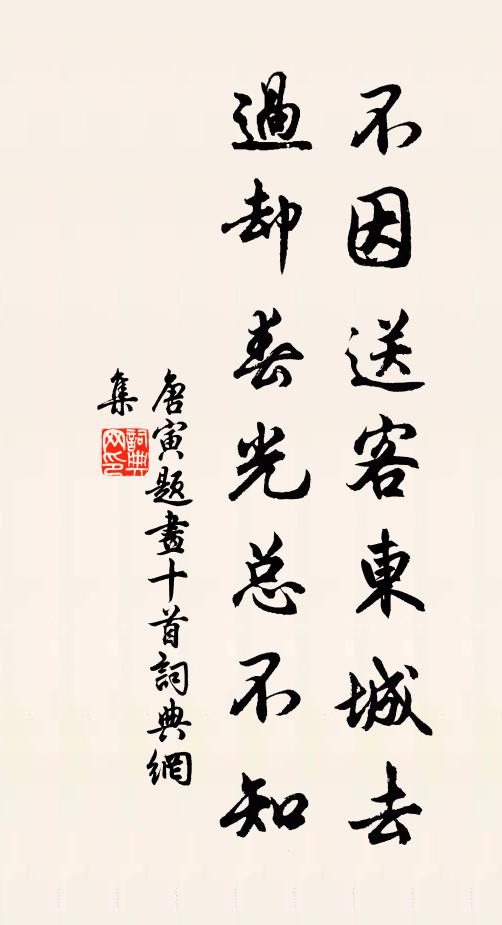 不因送客東城去
過却春光总不知
唐寅题畫十首詞典網
集
詞典
网印